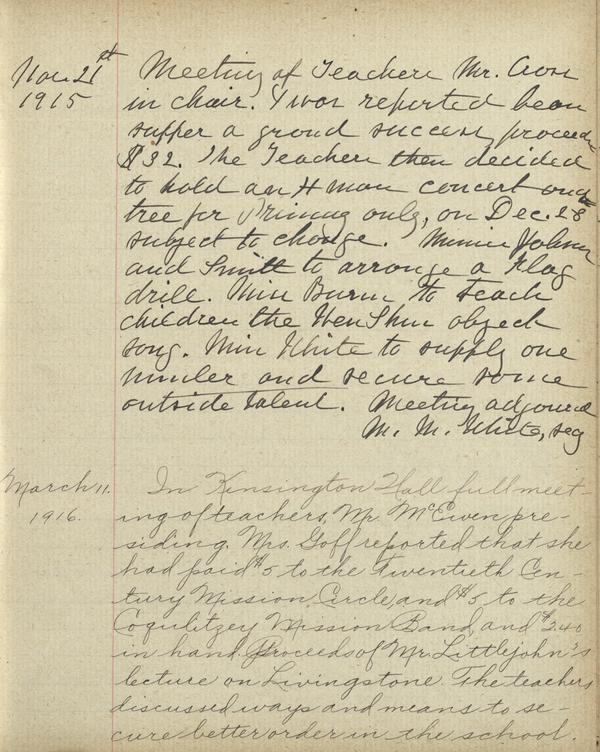 Nov. 21st
1915
Meeting of Teachers Mr.
in chair. I was reported bean
supper a grand success, proceeds
$32. The Teachers then decided
to hold an concert and
tree for Primary only, on Dec. 28
subject to change. Misses Johns
and Smith to arrange a Flag
drill. Miss Burns to teach
children the object
song. Miss White to supply one
number and secure some
outside talent. Meeting adjourned
M. M. White, seg
March 11.
1916.
In Kensington Hall full meet-
ing of teachers, Mr. McEwen pre-
siding. Mrs. Goff reported that she
had paid $5 to the Twentieth Cen-
tury Mission Circle, and $5 to the
Mission Band, and $2.40
in hand Proceeds of Mr. Littlejohn's
lecture on Livingstone. The teachers
discussed ways and means to se-
cure better order in the school.